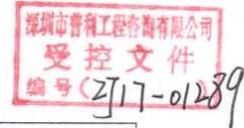 深圳市普利工程咨询有限公司
受控文件
编号(ZJ17-01289